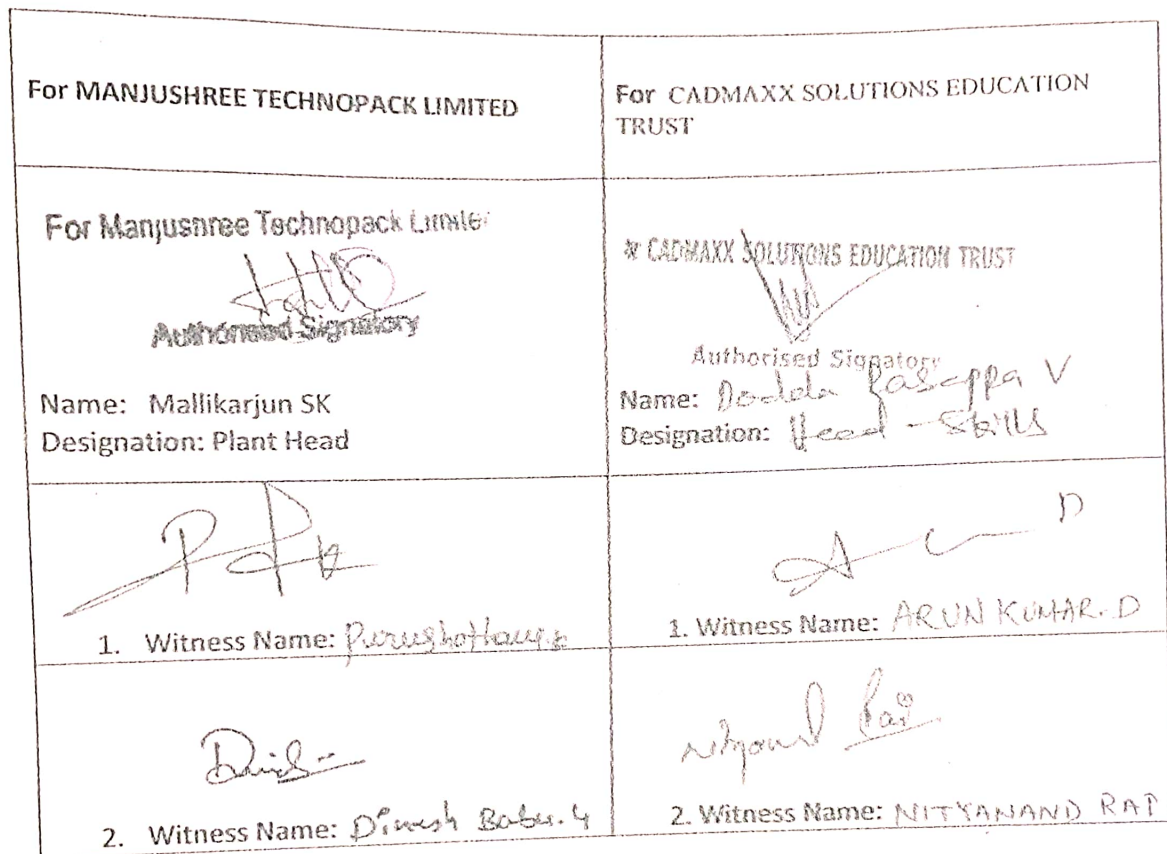 For MANJUSHREE TECHNOPACK LIMITED
For CADMAXX SOLUTIONS EDUCATION
TRUST
For Manjushree Technopack Limite
Authorised Signatory
Name: Mallikarjun SK
Designation: Plant Head
CADMAXX SOLUTIONS EDUCATION TRUST
Authorised Signatory
Name: Dodda Basappa V
Designation: Head - Skills
1. Witness Name:
1. Witness Name: ARUN KUMAR. D
2. Witness Name: Dinesh Babu. G
2. Witness Name: NITYANAND RAI